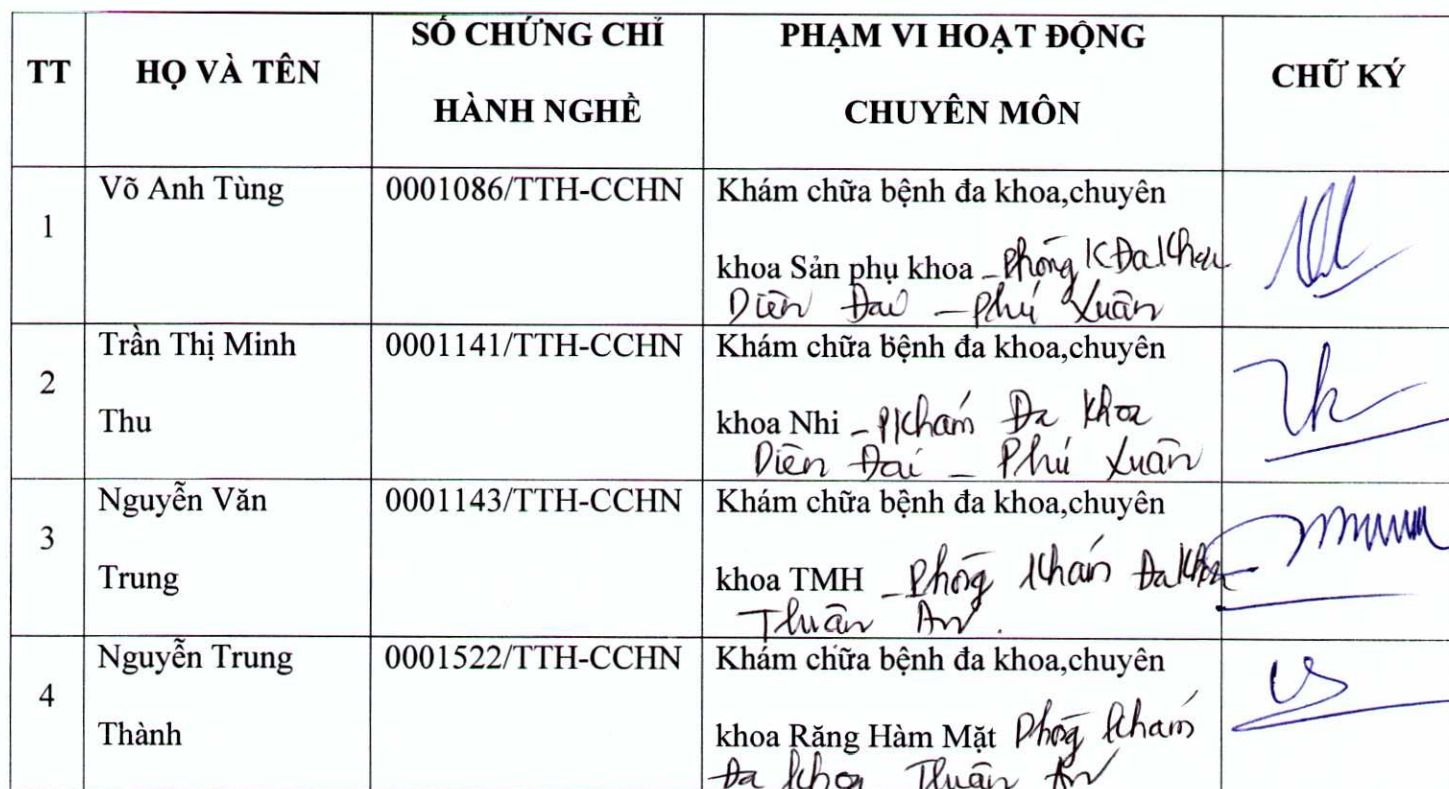 TT
HỌ VÀ TÊN
SỐ CHỨNG CHỈ
HÀNH NGHỀ
PHẠM VI HOẠT ĐỘNG
CHUYÊN MÔN
CHỮ KÝ
1
Võ Anh Tùng
0001086/TTH-CCHN
Khám chữa bệnh đa khoa,chuyên
khoa Sản phụ khoa - Phòng K Đa Khoa
Diên Đại - Phú Xuân
2
Trần Thị Minh
Thu
0001141/TTH-CCHN
Khám chữa bệnh đa khoa,chuyên
khoa Nhi - PKhám Đa Khoa
Diên Đại - Phú Xuân
3
Nguyễn Văn
Trung
0001143/TTH-CCHN
Khám chữa bệnh đa khoa,chuyên
khoa TMH - Phòng Khám Đa Khoa
Thuận An.
4
Nguyễn Trung
Thành
0001522/TTH-CCHN
Khám chữa bệnh đa khoa,chuyên
khoa Răng Hàm Mặt Phòng Khám
Đa Khoa Thuận An